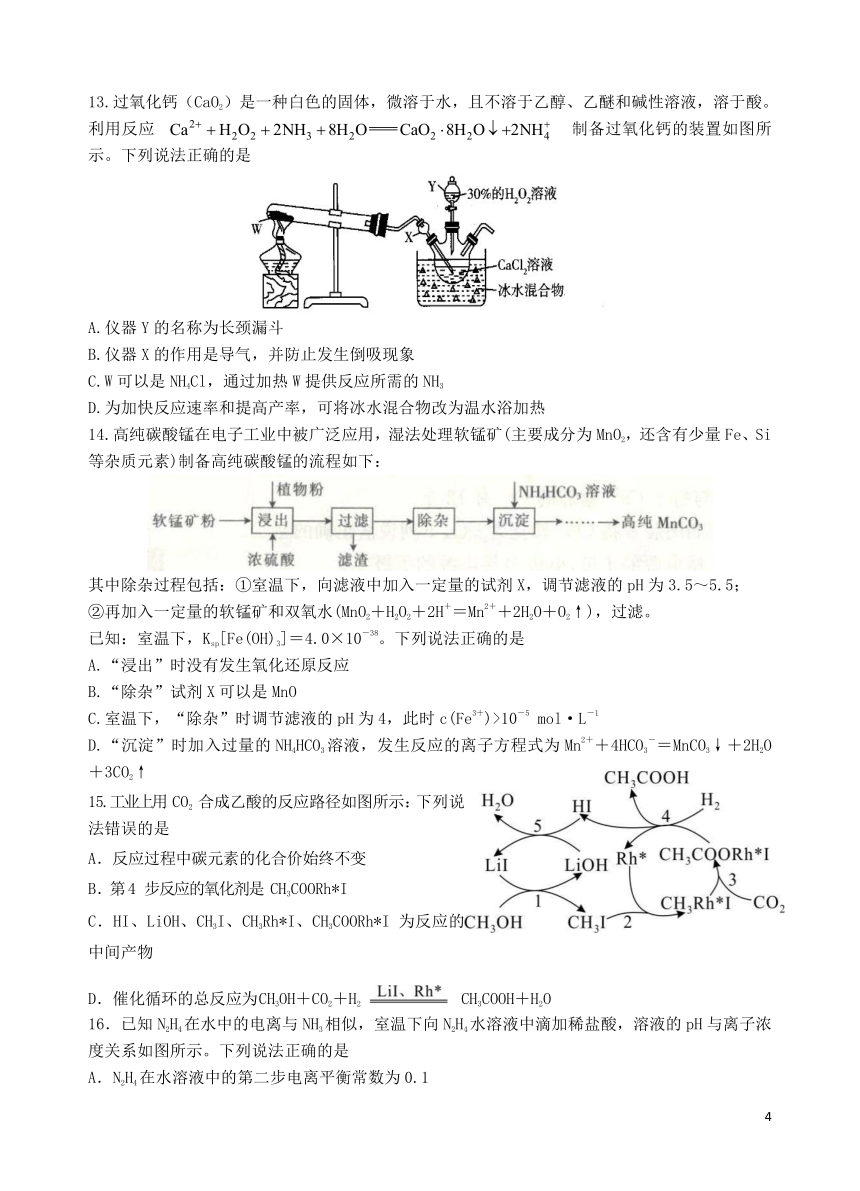 13.过氧化钙（CaO₂）是一种白色的固体，微溶于水，且不溶于乙醇、乙醚和碱性溶液，溶于酸。
利用反应 Ca²⁺ + H₂O₂ + 2NH₃ + 8H₂O══CaO₂·8H₂O↓+2NH₄⁺ 制备过氧化钙的装置如图所
示。下列说法正确的是
Y
30%的H₂O₂溶液
W
X
CaCl₂溶液
冰水混合物
A.仪器 Y 的名称为长颈漏斗
B.仪器 X 的作用是导气，并防止发生倒吸现象
C.W 可以是 NH₄Cl，通过加热 W 提供反应所需的 NH₃
D.为加快反应速率和提高产率，可将冰水混合物改为温水浴加热
14.高纯碳酸锰在电子工业中被广泛应用,湿法处理软锰矿(主要成分为 MnO₂，还含有少量 Fe、Si
等杂质元素)制备高纯碳酸锰的流程如下：
植物粉
NH₄HCO₃ 溶液
软锰矿粉 浸出 过滤 除杂 沉淀 …… 高纯 MnCO₃
浓硫酸 滤渣
其中除杂过程包括：①室温下，向滤液中加入一定量的试剂 X，调节滤液的 pH 为 3.5～5.5；
②再加入一定量的软锰矿和双氧水(MnO₂＋H₂O₂＋2H⁺＝Mn²⁺＋2H₂O＋O₂↑)，过滤。
已知：室温下，Kₛₚ[Fe(OH)₃]＝4.0×10⁻³⁸。下列说法正确的是
A.“浸出”时没有发生氧化还原反应
B.“除杂”试剂 X 可以是 MnO
C.室温下，“除杂”时调节滤液的 pH 为 4，此时 c(Fe³⁺)>10⁻⁵ mol·L⁻¹
D.“沉淀”时加入过量的 NH₄HCO₃ 溶液，发生反应的离子方程式为 Mn²⁺＋4HCO₃⁻＝MnCO₃↓＋2H₂O
＋3CO₂↑
15.工业上用 CO₂ 合成乙酸的反应路径如图所示：下列说
法错误的是
A．反应过程中碳元素的化合价始终不变
B．第 4 步反应的氧化剂是 CH₃COORh*I
C．HI、LiOH、CH₃I、CH₃Rh*I、CH₃COORh*I 为反应的
中间产物
CH₃COOH
H₂O HI H₂
5 4
LiI LiOH Rh* CH₃COORh*I
1 3
CH₃Rh*I CO₂
CH₃OH CH₃I 2
D．催化循环的总反应为CH₃OH＋CO₂＋H₂ LiI、Rh* ══ CH₃COOH＋H₂O
16．已知 N₂H₄ 在水中的电离与 NH₃ 相似，室温下向 N₂H₄ 水溶液中滴加稀盐酸，溶液的 pH 与离子浓
度关系如图所示。下列说法正确的是
A．N₂H₄ 在水溶液中的第二步电离平衡常数为 0.1
4